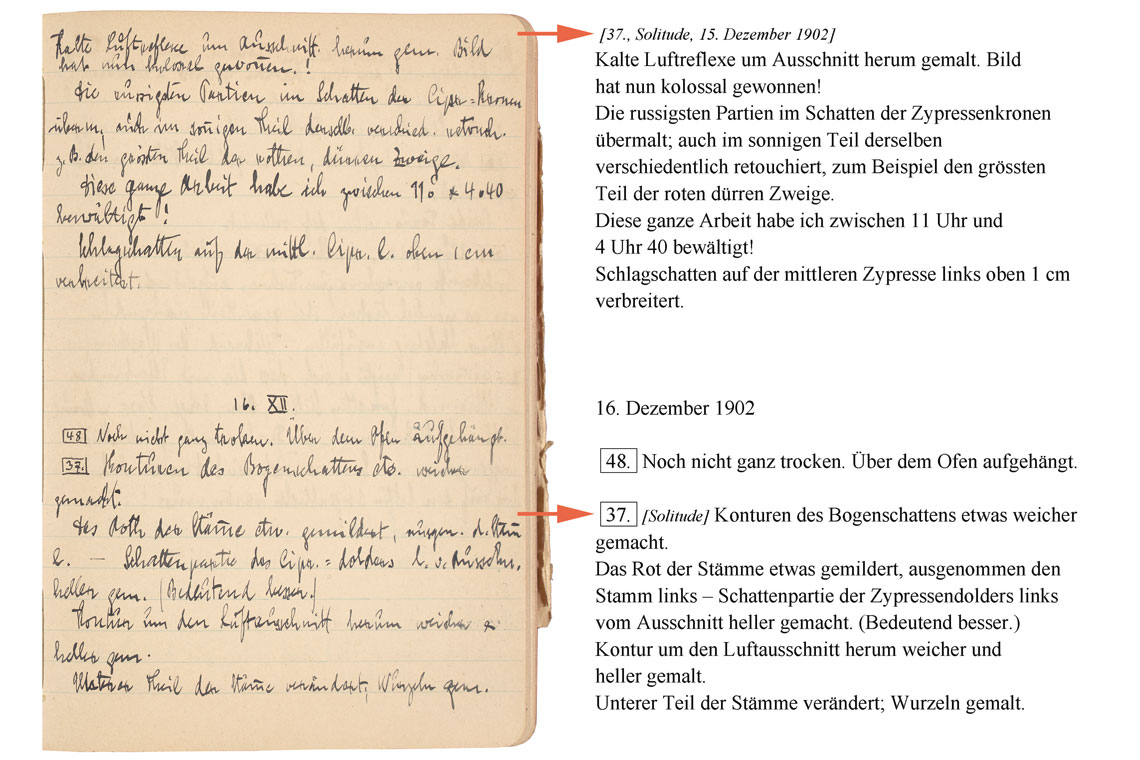 Kalte Luftreflexe um Ausschnitt herum gem. Bild
hat nun kolossal gewonnen.!
Die russigsten Partien im Schatten der Cipr.=Kronen
überm, auch im sonnigen Theil derselb. verschied. retouch.
z. B. den grössten Theil der rothen, dürren Zweige.
Diese ganze Arbeit habe ich zwischen 11° & 4.40
bewältigt!
Schlagschatten auf der mittl. Cipr. l. oben 1 cm
verbreitert.
16. XII.
48 Noch nicht ganz trocken. Über dem Ofen aufgehängt.
37. Konturen des Bogenschattens etw. weicher
gemacht.
Das Roth der Stäme etw. gemildert, ausgen. d. Stam
l. — Schattenpartie des Cipr.=dolders l. v. Ausschn.
heller gem. (Bedeutend besser.)
Kontur um den Luftausschnitt herum weicher &
heller gem.
Unterer Theil der Stäme verändert; Wurzeln gem.
[37., Solitude, 15. Dezember 1902]
Kalte Luftreflexe um Ausschnitt herum gemalt. Bild
hat nun kolossal gewonnen!
Die russigsten Partien im Schatten der Zypressenkronen
übermalt; auch im sonnigen Teil derselben
verschiedentlich retouchiert, zum Beispiel den grössten
Teil der roten dürren Zweige.
Diese ganze Arbeit habe ich zwischen 11 Uhr und
4 Uhr 40 bewältigt!
Schlagschatten auf der mittleren Zypresse links oben 1 cm
verbreitert.
16. Dezember 1902
48. Noch nicht ganz trocken. Über dem Ofen aufgehängt.
37. [Solitude] Konturen des Bogenschattens etwas weicher
gemacht.
Das Rot der Stämme etwas gemildert, ausgenommen den
Stamm links – Schattenpartie der Zypressendolders links
vom Ausschnitt heller gemacht. (Bedeutend besser.)
Kontur um den Luftausschnitt herum weicher und
heller gemalt.
Unterer Teil der Stämme verändert; Wurzeln gemalt.